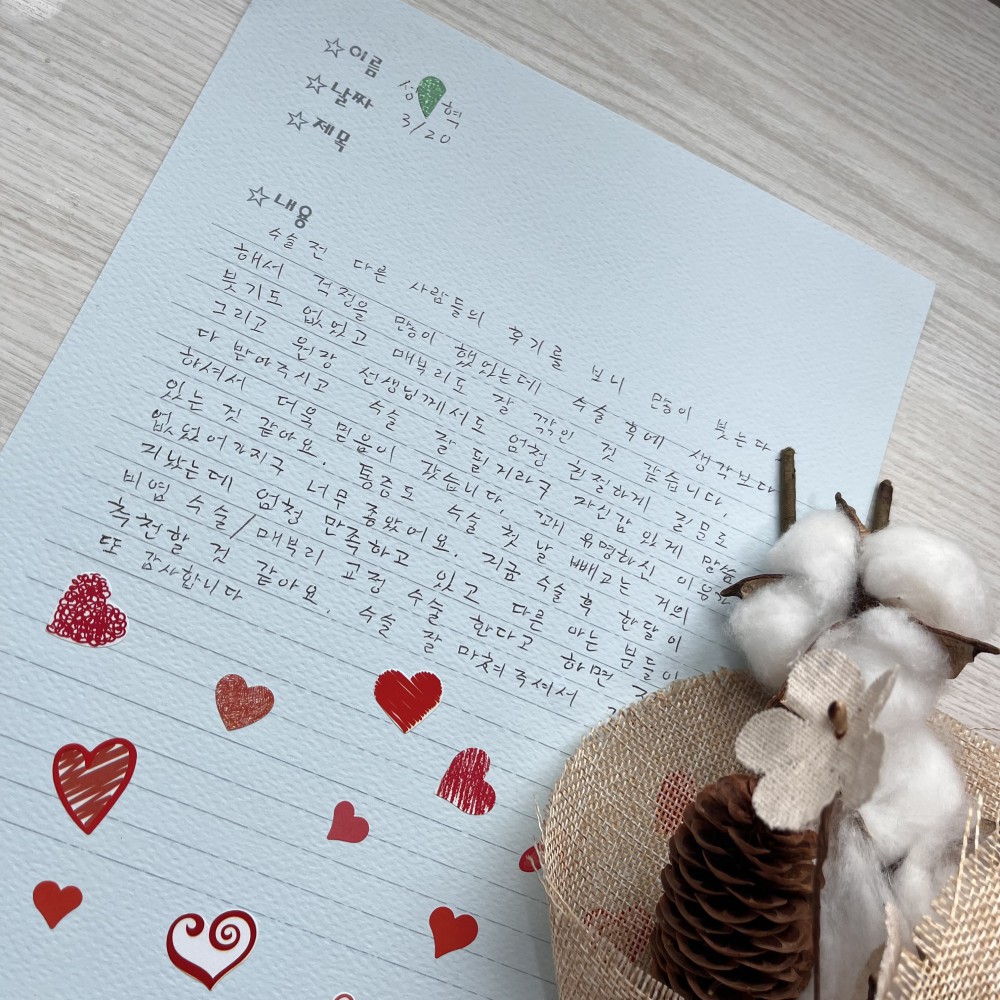 ☆이름 성 혁
☆날짜 3/20
☆제목
☆내용
수술 전 다른 사람들의 후기를 보니 많이 붓는다
해서 걱정을 많이 했었는데 수술 후에 생각보다
붓기도 없었고 매부리도 잘 깎인 것 같습니다.
그리고 원장 선생님께서도 엄청 친절하게 질문도
다 받아주시고 수술 잘 될거라구 자신감 있게 말씀
하셔서 더욱 믿음이 갔습니다. 괘 유명하신 이유가
있는 것 같아요. 통증도 수술 첫 날 빼고는 거의
없었어가지구 너무 좋았어요. 지금 수술 후 한달이
지났는데 엄청 만족하고 있고 다른 아는 분들이
비염 수술/매부리 교정 수술 한다고 하면
추천할 것 같아요. 수술 잘 마쳐주셔서
또 감사합니다